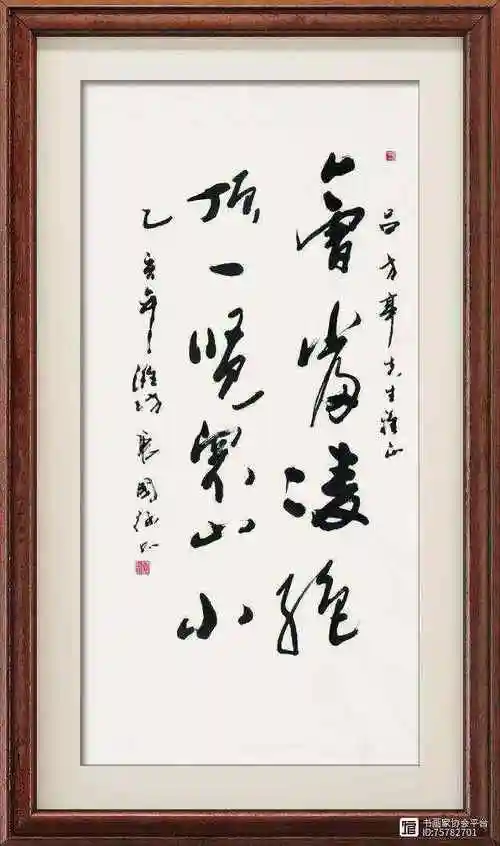 吕方亭先生雅正
會當凌絕
頂一覽眾山小
乙亥年濰坊
书画家协会平台
ID:75782701